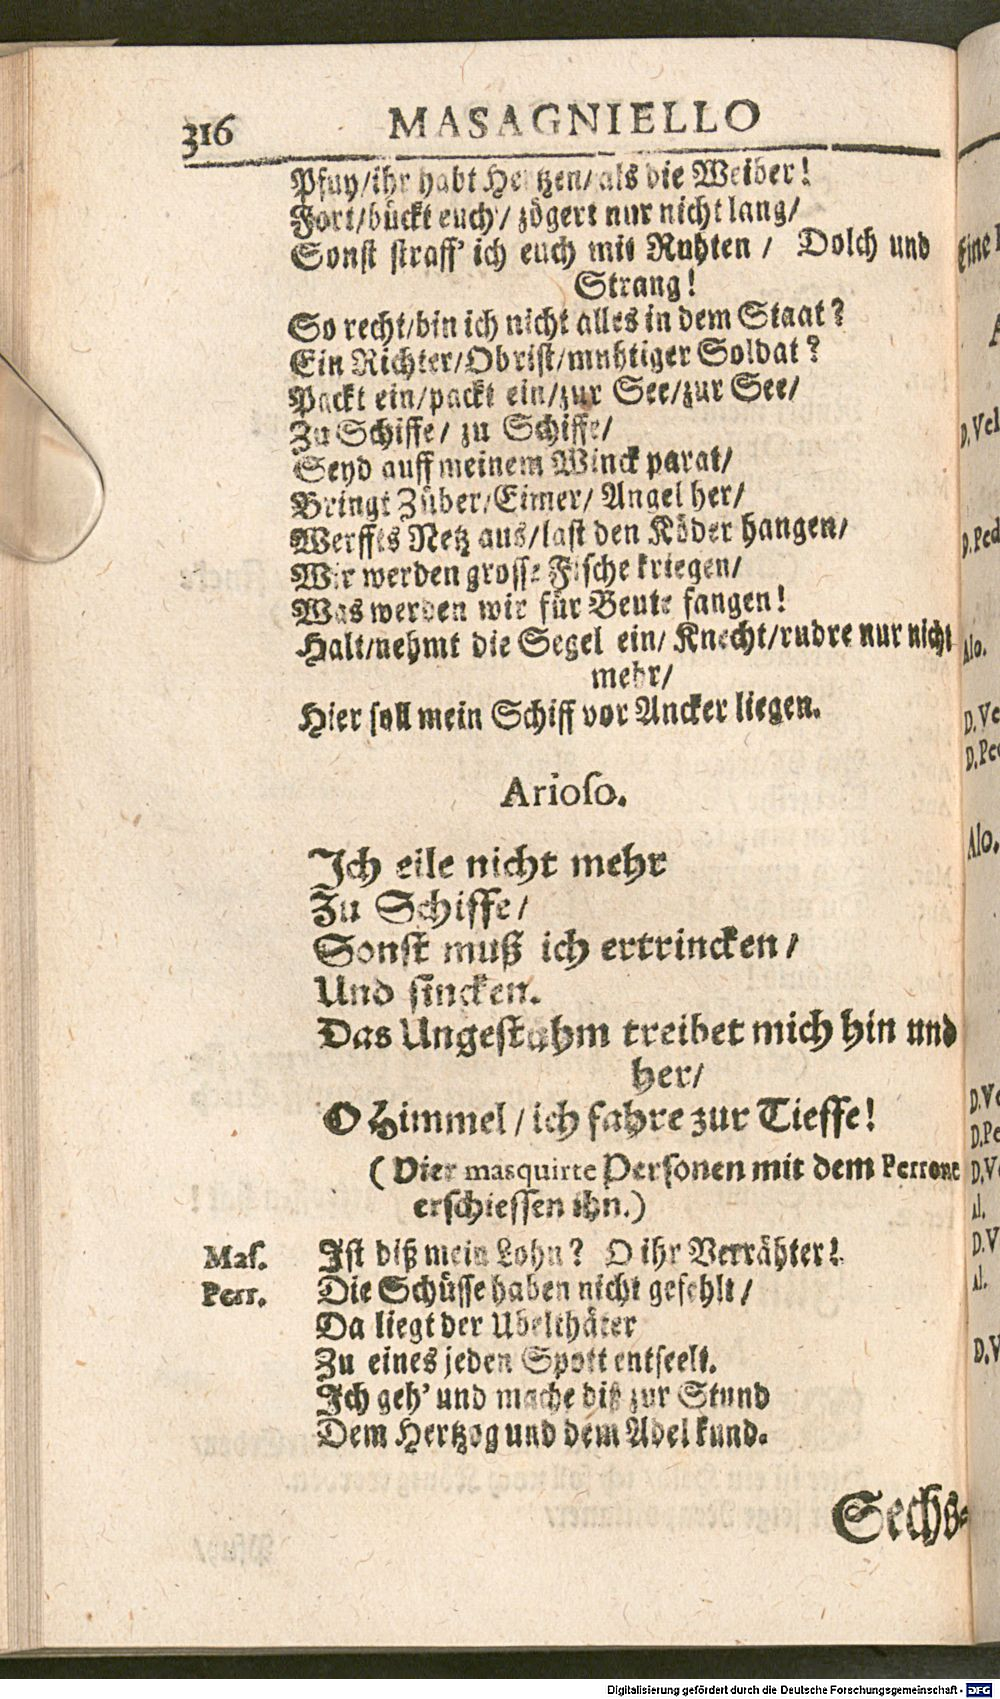 316 MASAGNIELLO
Pfuy/ihr habt Hertzen/als die Weiber!
Fort/bückt euch/ zögert nur nicht lang/
Sonst straff' ich euch mit Ruhten / Dolch und
Strang!
So recht/bin ich nicht alles in dem Staat?
Ein Richter/Obrist/muhtiger Soldat?
Packt ein/packt ein/zur See/zur See/
Zu Schiffe/ zu Schiffe/
Seyd auff meinem Winck parat/
Bringt Züber/Eimer/ Angel her/
Werffts Netz aus/last den Köder hangen/
Wir werden grosse Fische kriegen/
Was werden wir für Beute fangen!
Halt/nehmt die Segel ein/ Knecht/rudre nur nicht
mehr/
Hier soll mein Schiff vor Ancker liegen.
Arioso.
Ich eile nicht mehr
Zu Schiffe/
Sonst muß ich ertrincken/
Und sincken.
Das Ungestühm treibet mich hin und
her/
O Himmel/ich fahre zur Tieffe!
(Vier masquirte Personen mit dem Perrone
erschiessen ihn.)
Mas. Ist diß mein Lohn? O ihr Verrähter!
Perr. Die Schüsse haben nicht gefehlt/
Da liegt der Ubelthäter
Zu eines jeden Spott entseelt.
Ich geh' und mache diß zur Stund
Dem Hertzog und dem Adel kund.
Sechs=
Eine
D. Vel
D. Ped
Alo.
D. Ve
D. Pe
Alo.
D. Ve
D. Pe
D. V
Al.
D. V
Al.
D. V
Digitalisierung gefördert durch die Deutsche Forschungsgemeinschaft - DFG